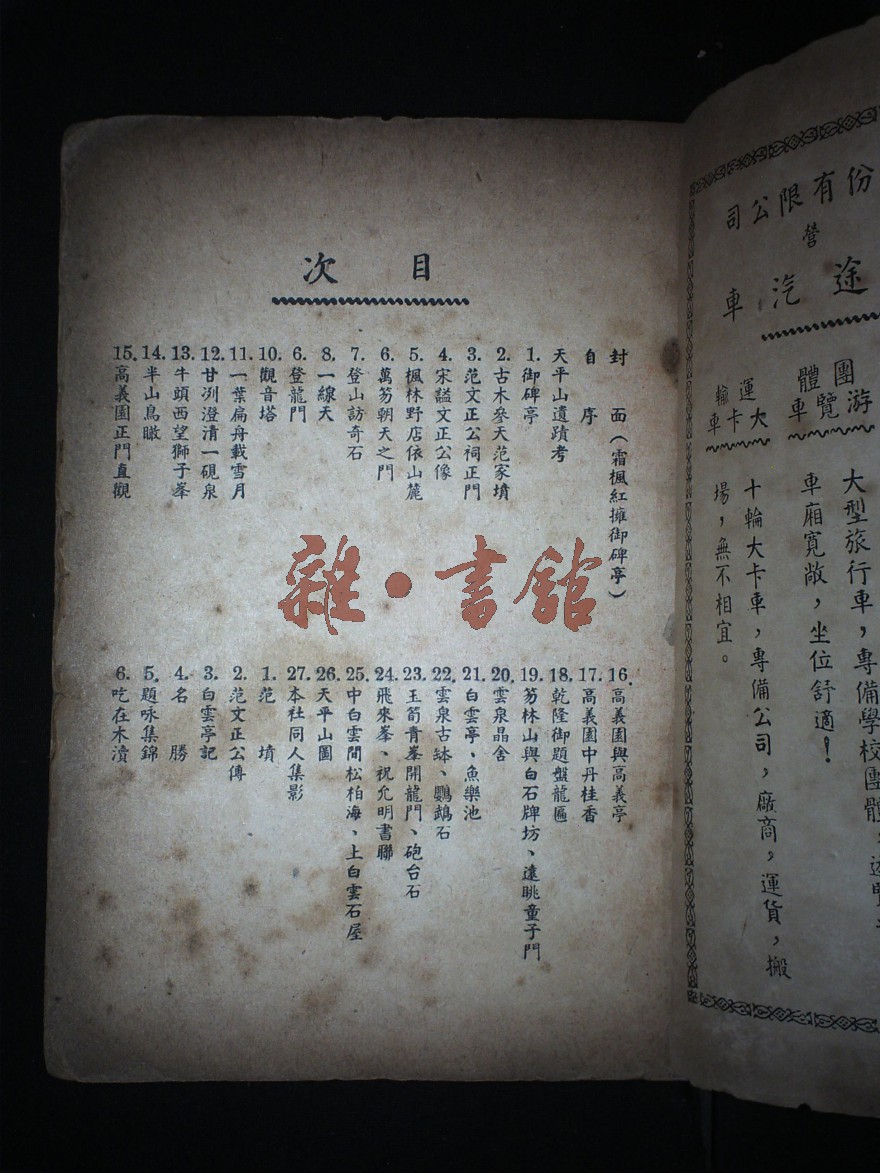 目次
封面(霜楓紅擁御碑亭)
自序
天平山遺蹟考
1. 御碑亭
2. 古木參天范家墳
3. 范文正公祠正門
4. 宋謚文正公像
5. 楓林野店依山麓
6. 萬笏朝天之門
7. 登山訪奇石
8. 一線天
6. 登龍門
10. 觀音塔
11. 一葉扁舟載雪月
12. 甘洌澄清一硯泉
13. 牛頭西望獅子峯
14. 半山鳥瞰
15. 高義園正門直觀
16. 高義園與高義亭
17. 高義園中丹桂香
18. 乾隆御題盤龍匾
19. 笏林山與白石牌坊、遠眺童子門
20. 雲泉晶舍
21. 白雲亭、魚樂池
22. 雲泉古缽、鸚鵡石
23. 玉筍青峯開龍門、砲台石
24. 飛來峯、祝允明書聯
25. 中白雲間松柏海、上白雲石屋
26. 天平山圖
27. 本社同人集影
1. 范墳
2. 范文正公傳
3. 白雲亭記
4. 名勝
5. 題咏集錦
6. 吃在木瀆
雜·書館
份有限公司
營
途汽車
團體游覽車
大型旅行車,專備學校團體,遊覽
車廂寬敞,坐位舒適!
運輸大卡車
十輪大卡車,專備公司,廠商,運貨,搬
場,無不相宜。